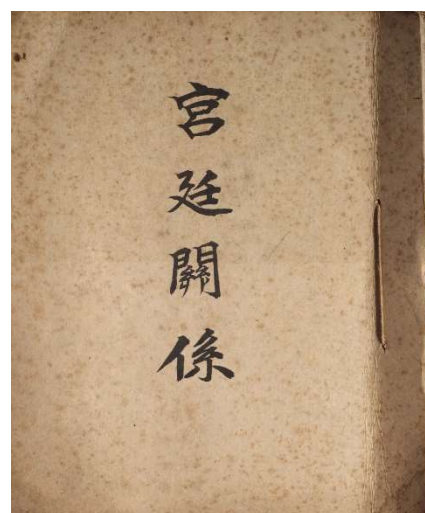 宮廷關係